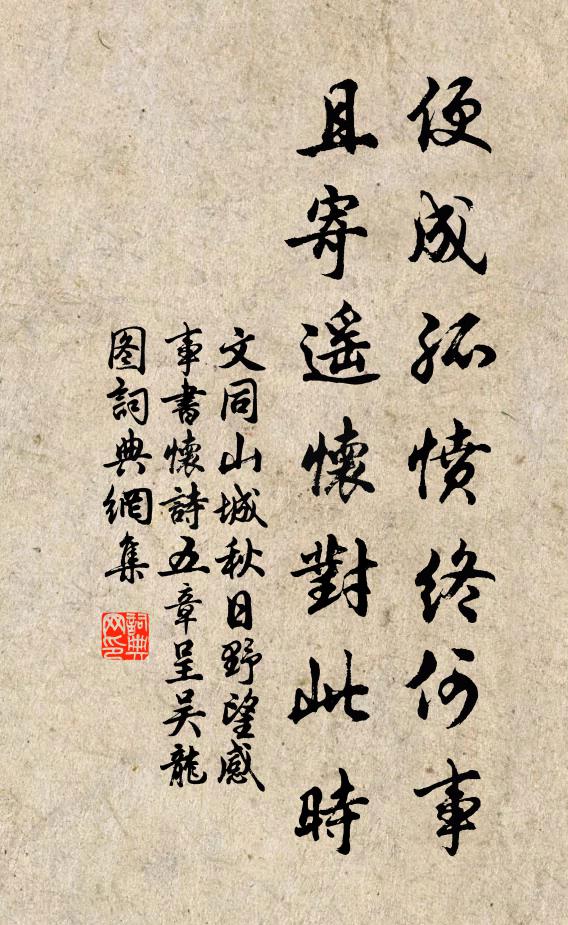 便成孤憤終何事
且寄遥懷對此時
文同山城秋日野望感
事書懷詩五章呈吴龍
图詞典網集
詞典网印